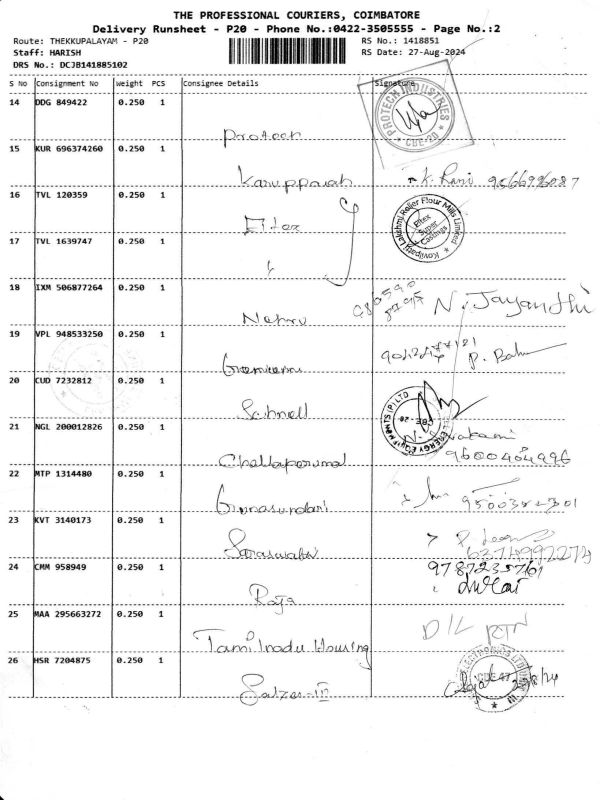 THE PROFESSIONAL COURIERS, COIMBATORE
Delivery Runsheet - P20 - Phone No.:0422-3505555 - Page No.:2
Route: THEKKUPALAYAM - P20 RS No.: 1418851
Staff: HARISH RS Date: 27-Aug-2024
DRS No.: DCJB141885102
S No Consignment No Weight PCS Consignee Details Signature
14 DDG 849422 0.250 1
PROTECH INDUSTRIES
Protech
15 KUR 696374260 0.250 1
Karuppaiah K. Rani
16 TVL 120359 0.250 1
Eltex
Kovilpatti Lakshmi Roller Flour Mills Limited
Eltex Super Castings
17 TVL 1639747 0.250 1
18 IXM 506877264 0.250 1
Nehru N. Jayanthi
19 VPL 948533250 0.250 1
P. Babu
20 CUD 7232812 0.250 1
Schnell
21 NGL 200012826 0.250 1
Chellaperumal
9600404996
22 MTP 1314480 0.250 1
Gunasundari
23 KVT 3140173 0.250 1
Saraswathi
6374992274
24 CMM 958949 0.250 1
9787235761
Raja
25 MAA 295663272 0.250 1
D/L RTN
Tamilnadu Housing
26 HSR 7204875 0.250 1
Salzer-III